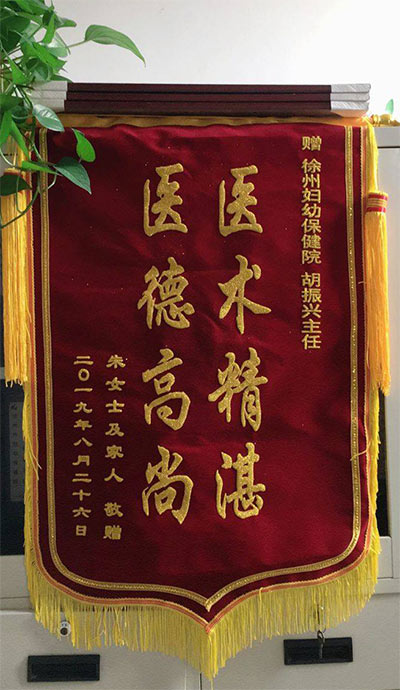 赠 徐州妇幼保健院 胡振兴主任
医术精湛
医德高尚
朱女士及家人 敬赠
二〇一九年八月二十六日